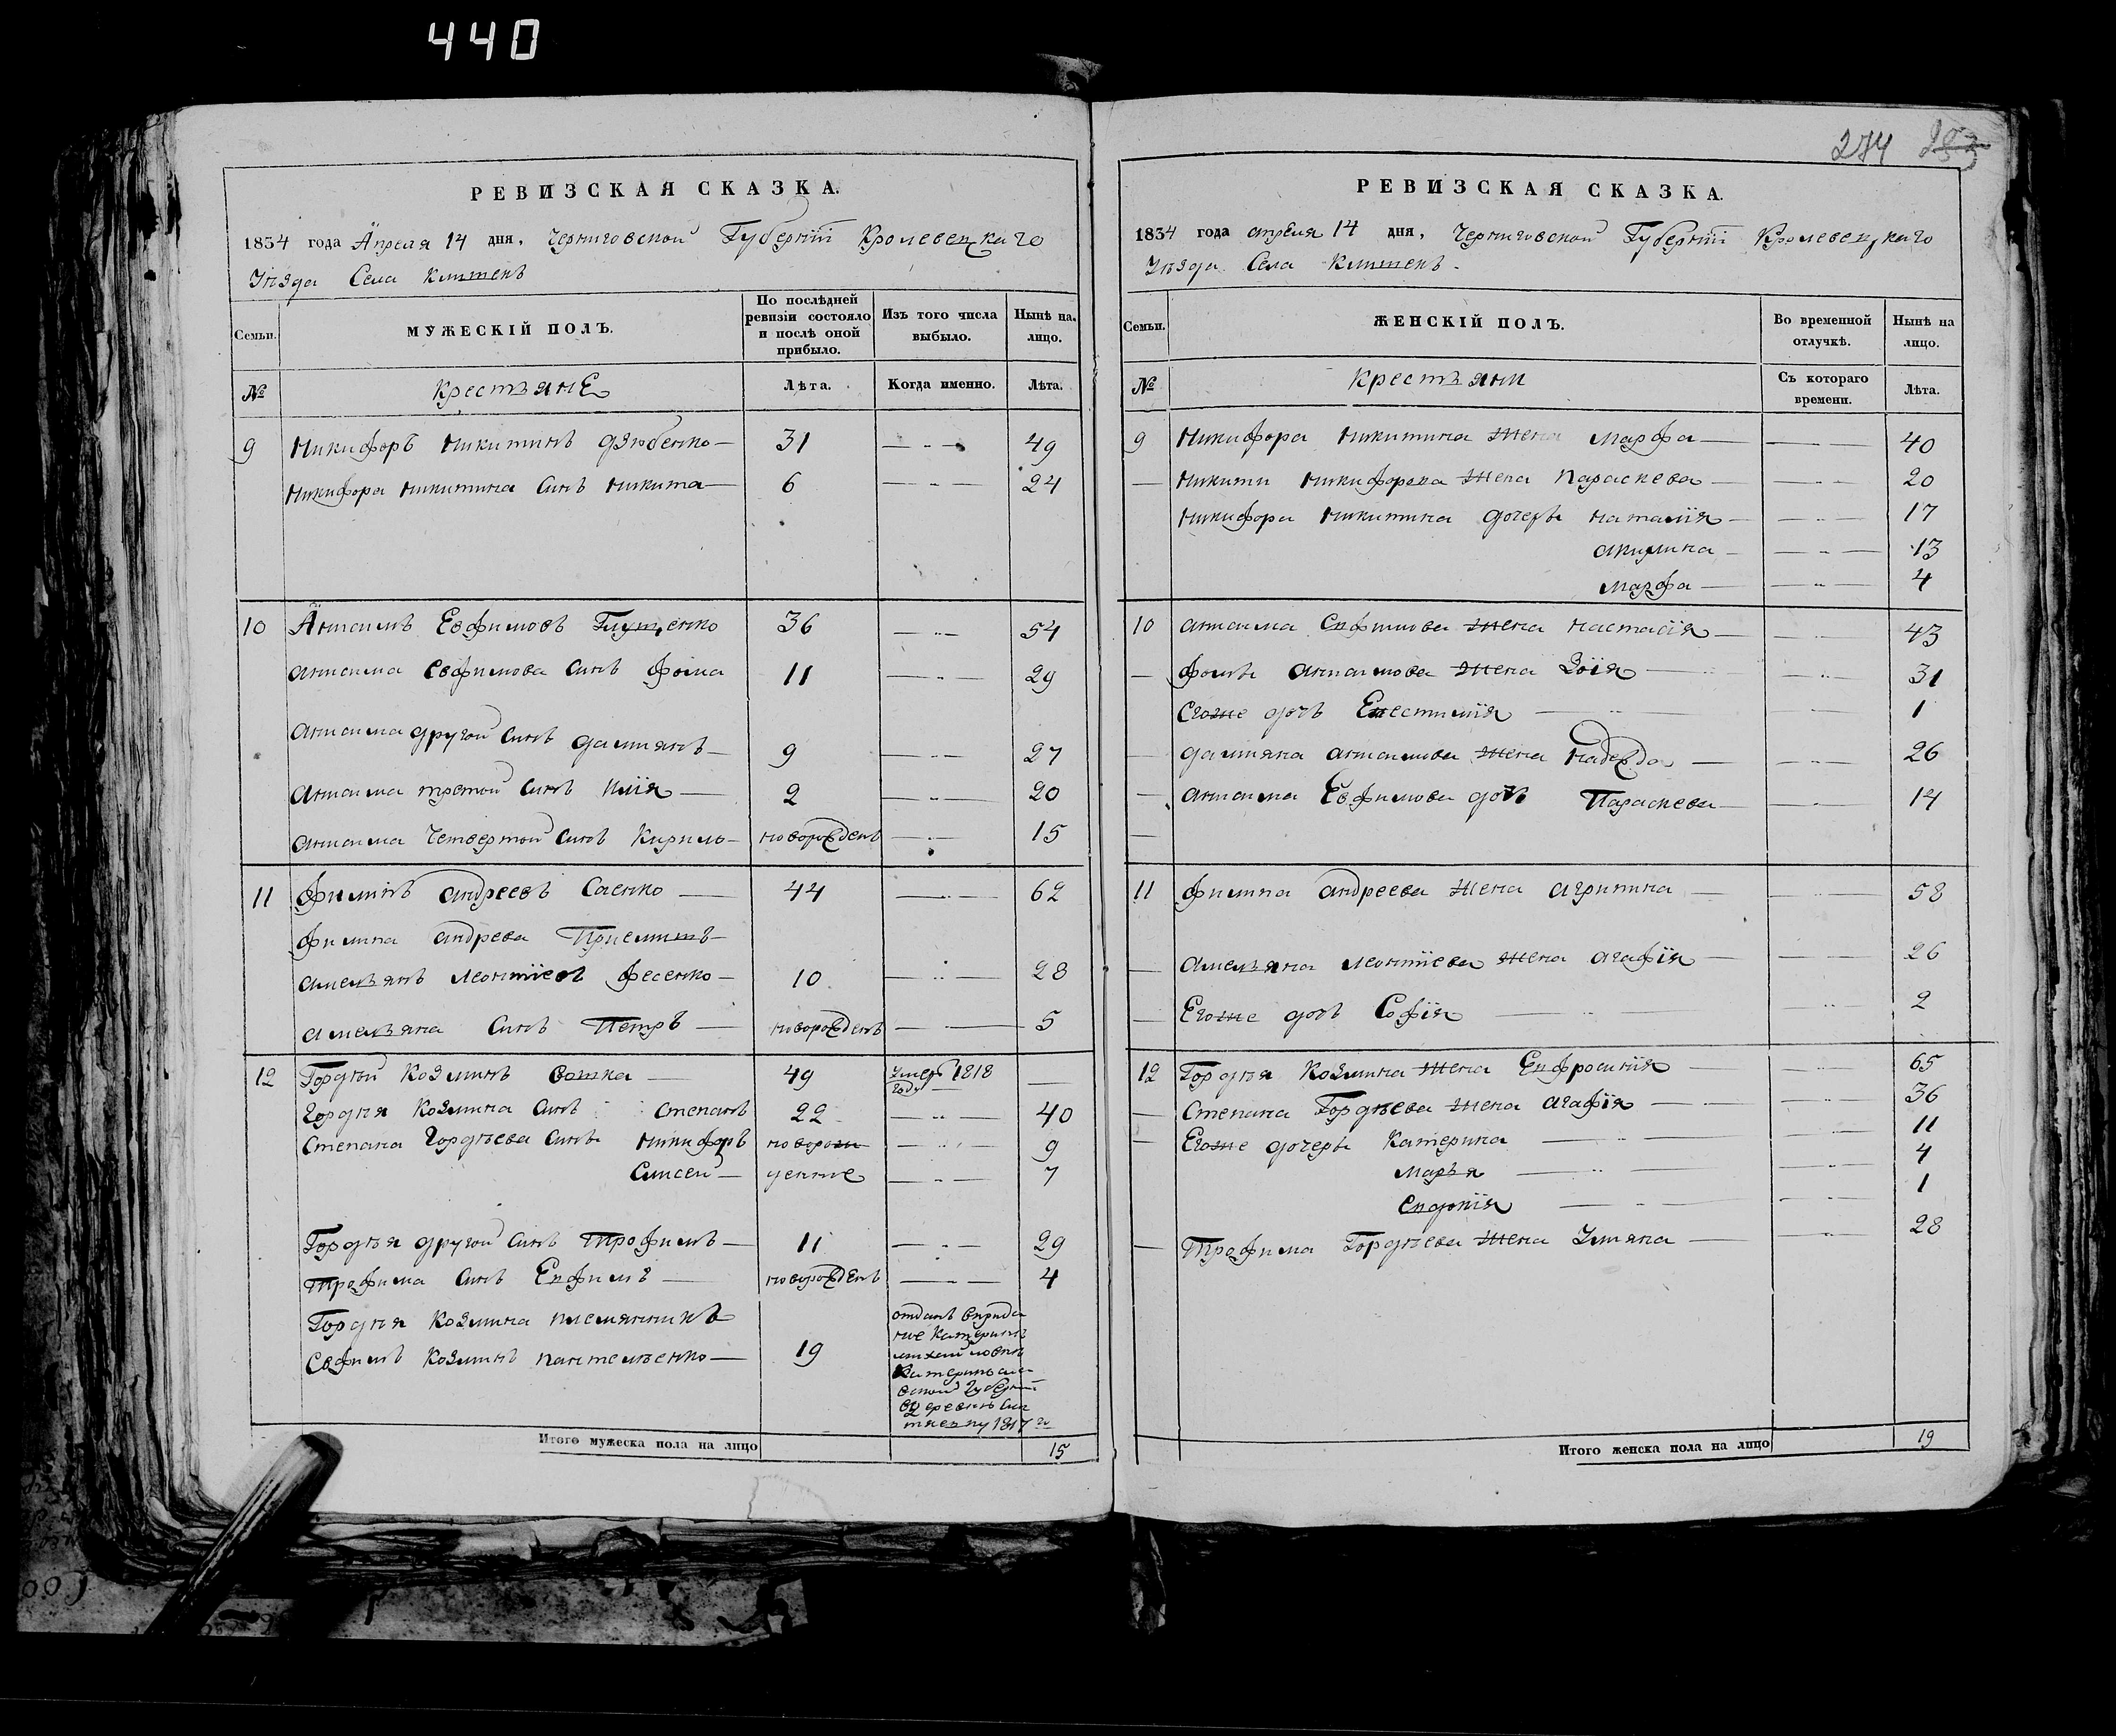 440
274 253
РЕВИЗСКАЯ СКАЗКА.
1834 года Апреля 14 дня, Черниговской Губернїи Кролевецкаго
Уѣзда Села Клишекъ
Семьи.
МУЖЕСКІЙ ПОЛЪ.
По послѣдней ревизіи состояло и послѣ оной прибыло.
Изъ того числа выбыло.
Нынѣ на лицо.
№ Крестьяне Лѣта. Когда именно. Лѣта.
9 Никифоръ Никитинъ Дзюбенко — 31 — 49
Никифора Никитина Синъ Никита — 6 — 24
10 Антонъ Евфимовъ 36 — 54
Евфимова Синъ Фома 11 — 29
другой Синъ Дамиянъ — 9 — 27
третой Синъ Илїя — 2 — 20
Четвертой Синъ Кирило — новорожденъ — 15
11 Филипъ Андреевъ Саенко — 44 — 62
Филипа Андрева Приемишъ —
Амельянъ Леонтїевъ Фесенко — 10 — 28
Амельяна Синъ Петръ — новорожденъ — 5
12 Гордѣй Козминъ — 49 умеръ 1818 году —
Гордѣя Козмина Синъ Степанъ 22 — 40
Степана Гордѣева Сини Никифоръ новорож — 9
— денние — 7
Гордѣя другой Синъ Трофимъ — 11 — 29
Трофима Синъ Епфимъ — новорожденъ — 4
Гордѣя Козмина племянникъ
Евфимъ Козминъ Пантелѣенко — 19
отданъ вприда
ние Катеринѣ
Катеринъсла
вской Губернїи
1817 го
Итого мужеска пола на лицо 15
РЕВИЗСКАЯ СКАЗКА.
1834 года апреля 14 дня, Черниговской Губернїи Кролевецкаго
Уѣзда Села Клишекъ.
Семьи.
ЖЕНСКІЙ ПОЛЪ.
Во временной отлучкѣ.
Нынѣ на лицо.
№ Крестьяни Съ котораго времени. Лѣта.
9 Никифора Никитина Жена Марфа — 40
— Никити Никифорова Жена Параскева — 20
Никифора Никитина дочери Наталїя — 17
Акилина — 13
Марфа — 4
10 Епфимова Жена Настасїя — 43
— Фоми Жена Зоїя — 31
Егоже дочь — 1
— Дамияна Жена Надежда — 26
— Евфимова дочь Параскева — 14
—
11 Филипа Андреева Жена Агрипина — 58
— Амельяна Леонтїева Жена Агафїя — 26
— Егоже дочь Софїя — 2
12 Гордѣя Козмина Жена Епфросинїя — 65
— Степана Гордѣева Жена Агафїя — 36
— Егоже дочери Катерина — 11
Марья — 4
Епдокїя — 1
— Трофима Гордѣева Жена Улияна — 28
Итого женска пола на лицо 19